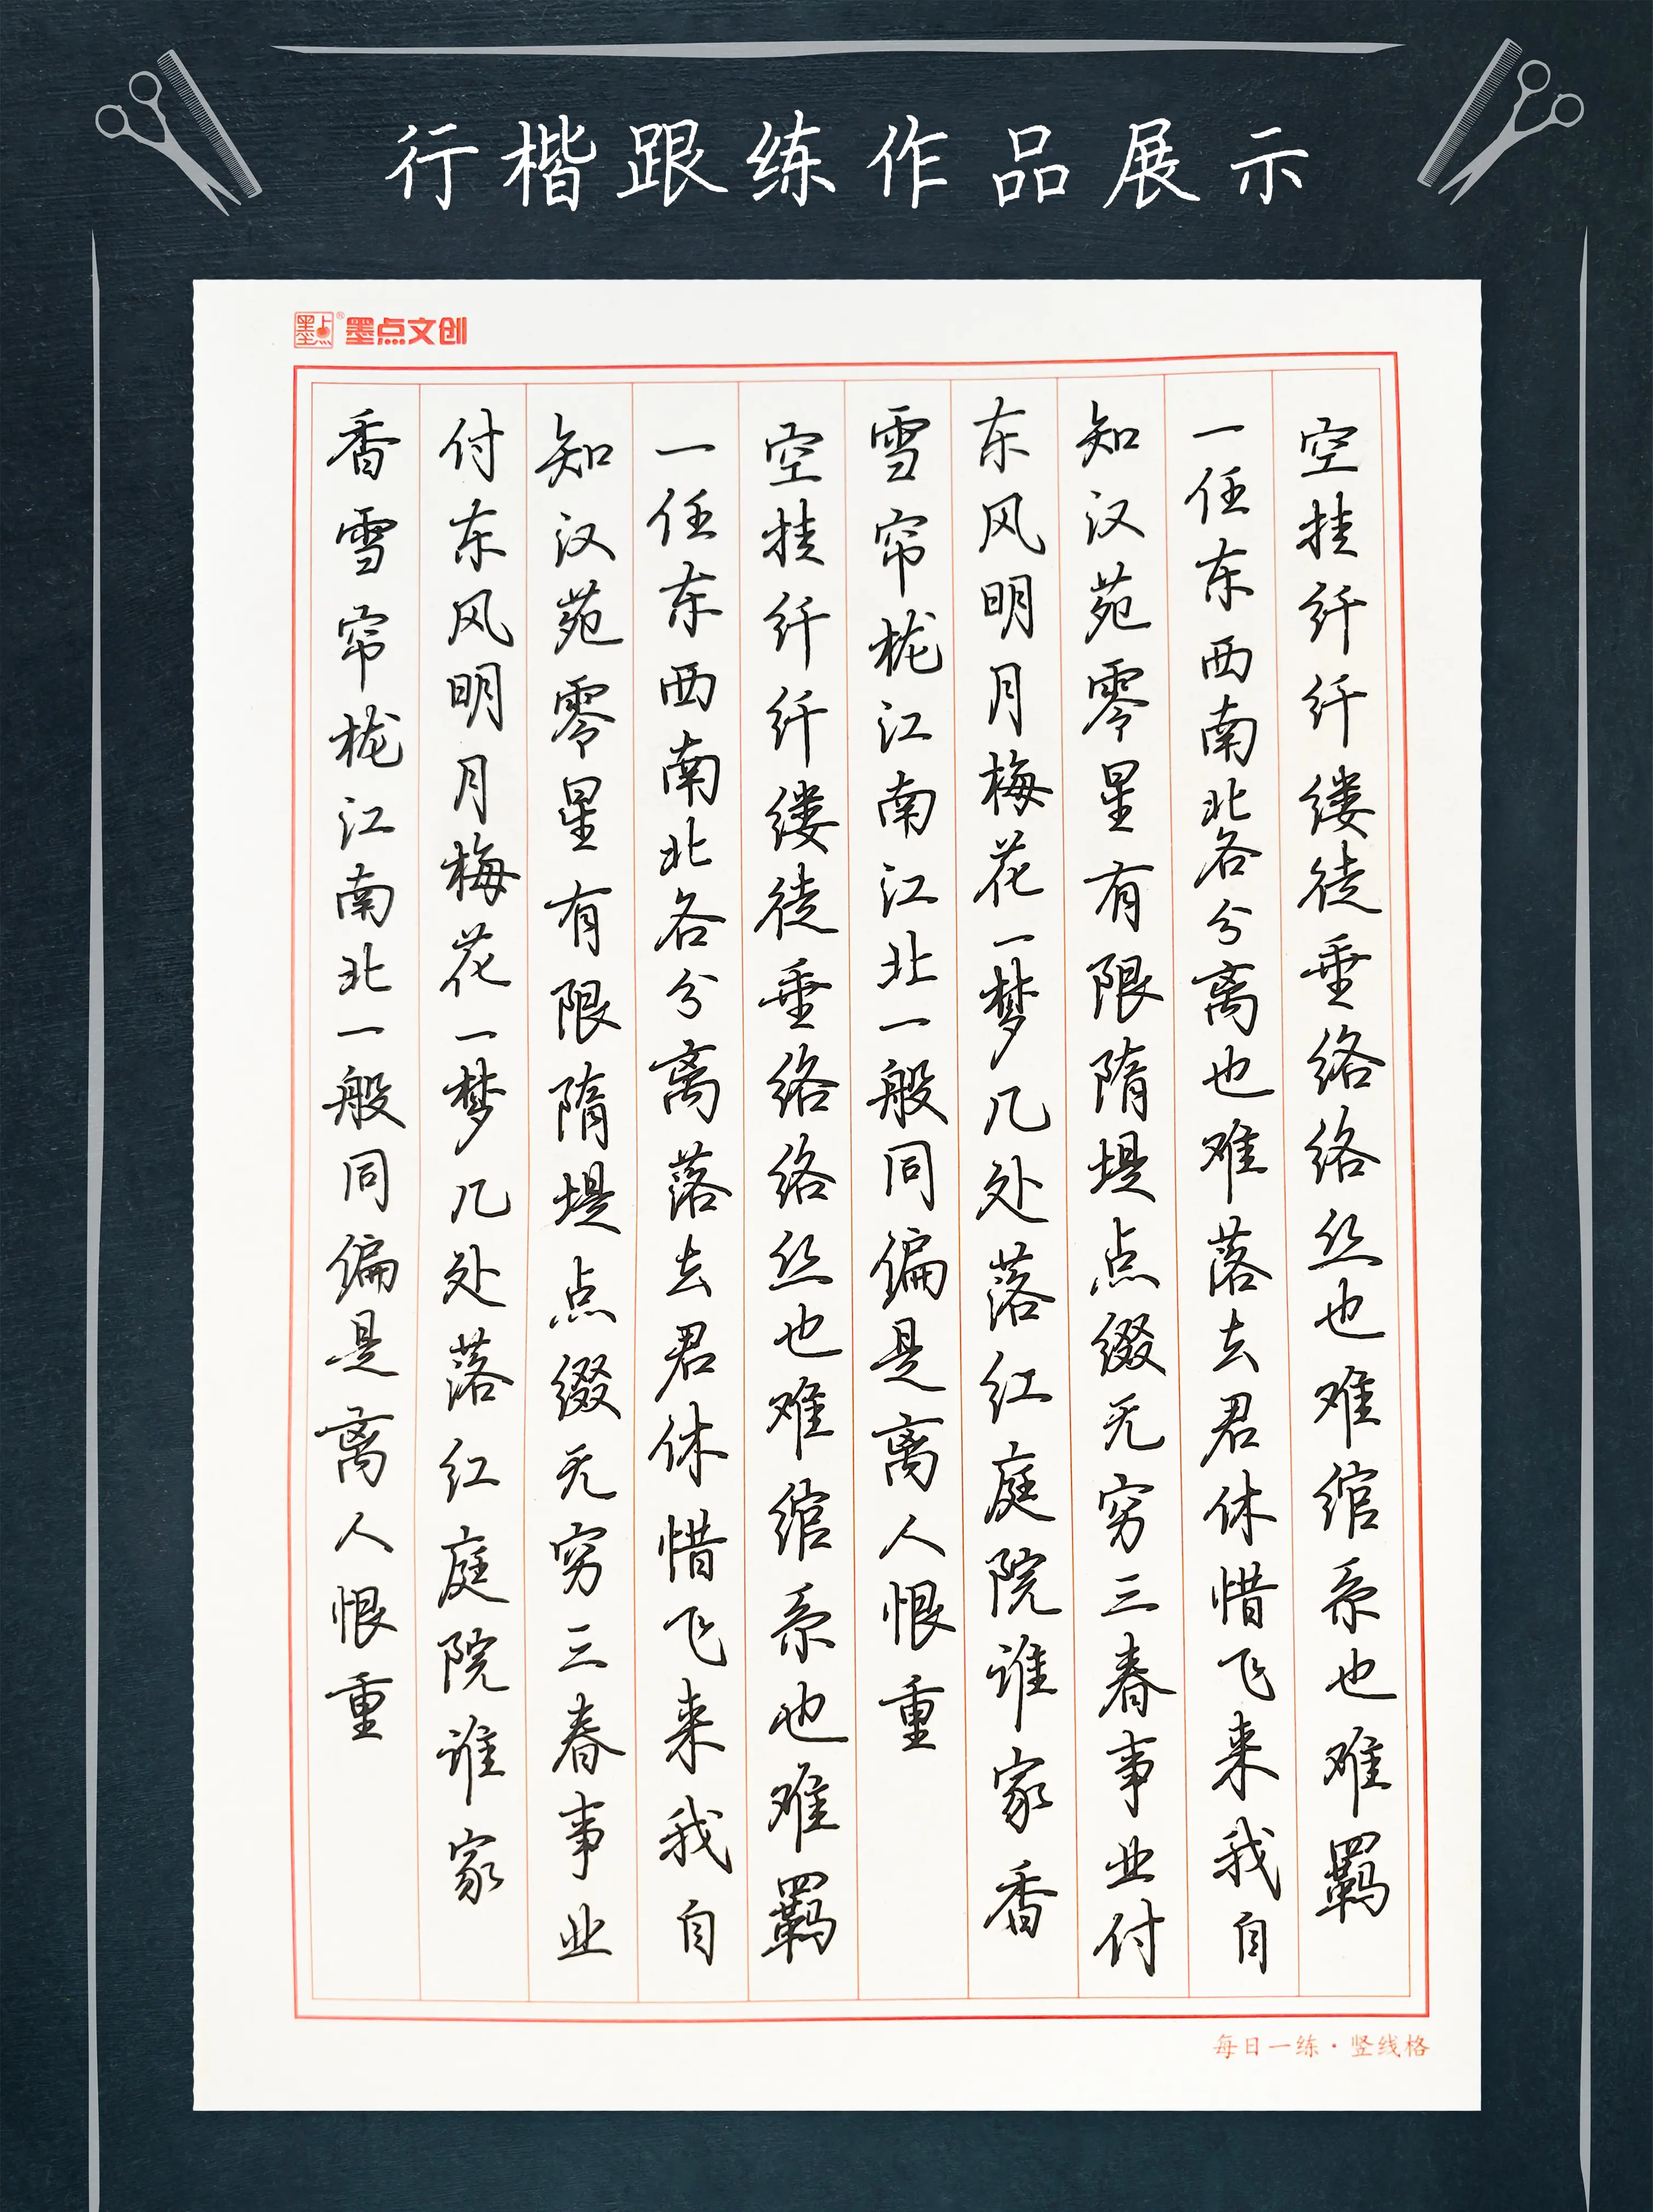 行楷跟练作品展示
墨点® 墨点文创
空挂纤纤缕徒垂络络丝也难绾系也难羁
一任东西南北各分离也难落去君休惜飞来我自
知汉苑零星有限隋堤点缀无穷三春事业付
东风明月梅花一梦几处落红庭院谁家香
雪帘栊江南江北一般同偏是离人恨重
空挂纤纤缕徒垂络络丝也难绾系也难羁
一任东西南北各分离落去君休惜飞来我自
知汉苑零星有限隋堤点缀无穷三春事业
付东风明月梅花一梦几处落红庭院谁家
香雪帘栊江南北一般同偏是离人恨重
每日一练·竖线格